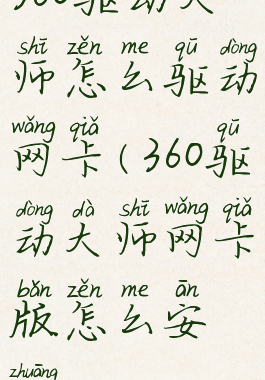 360驱动大
shī zěn me qū dòng
师怎么驱动
wǎng qiǎ qū
网卡(360驱
dòng dà shī wǎng qiǎ
动大师网卡
bǎn zěn me ān
版怎么安
zhuāng